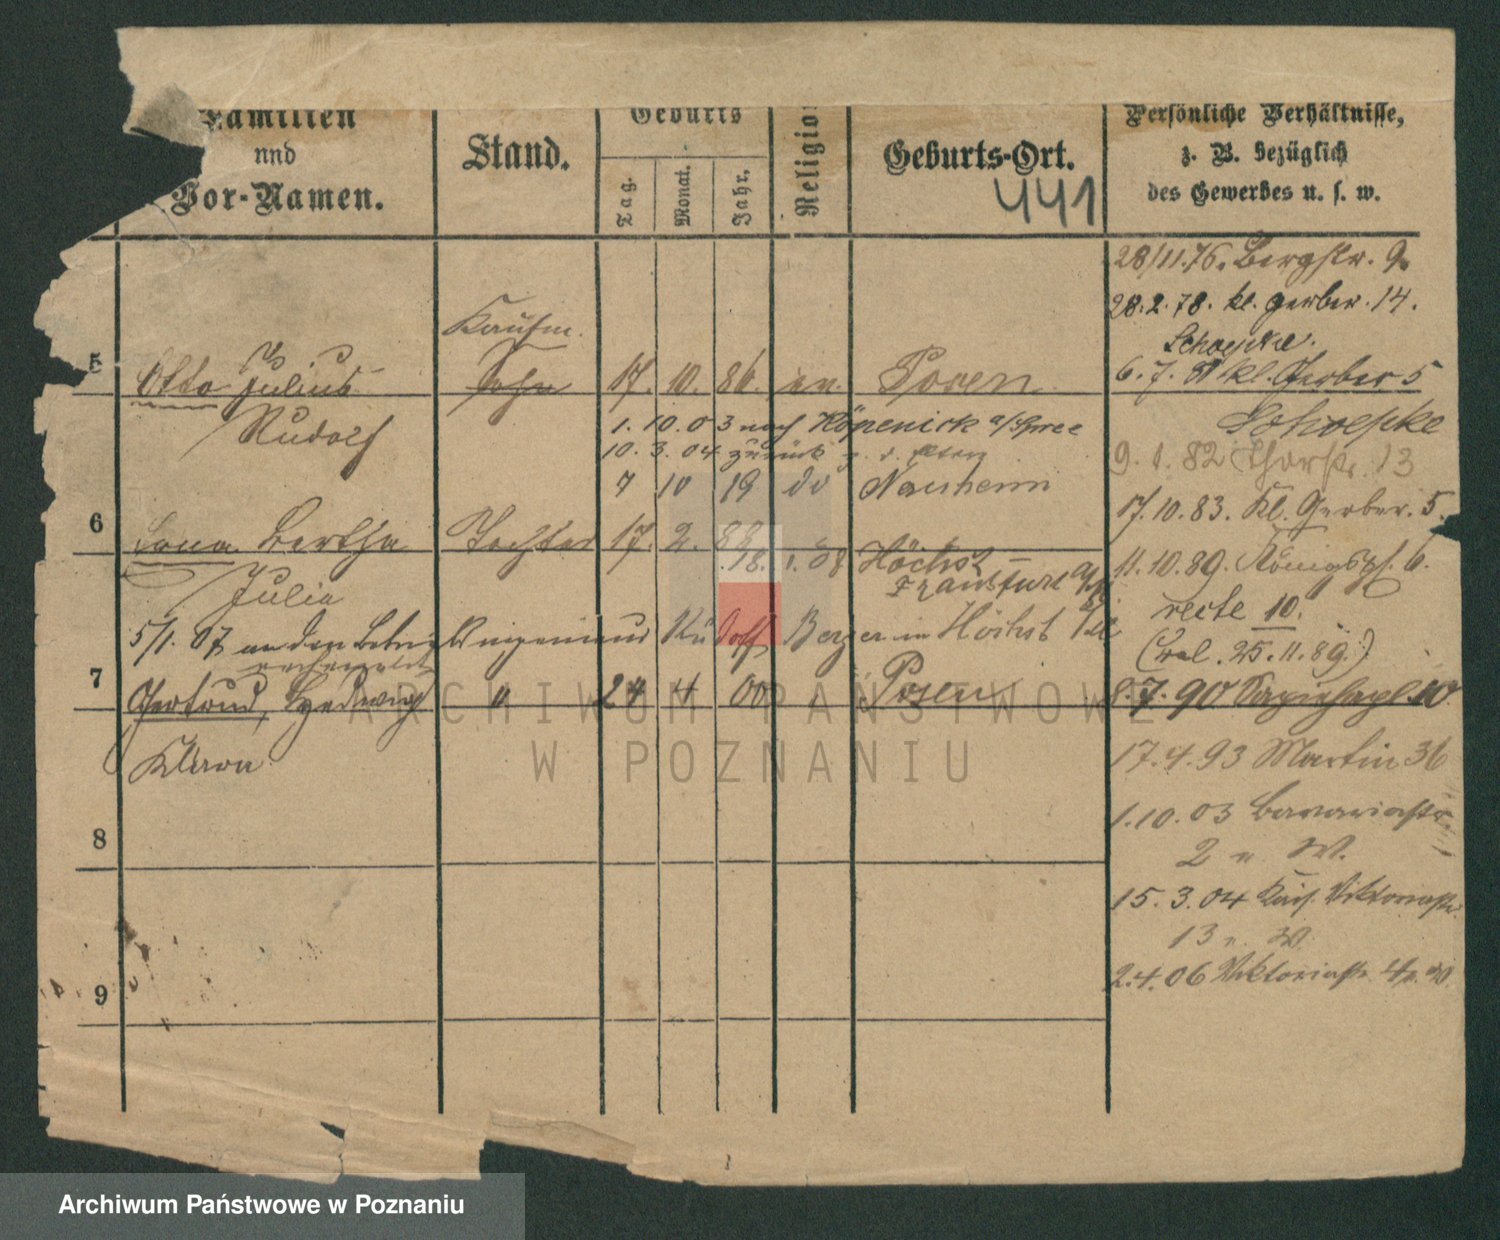 Familien
und
Vor-Namen.
Stand.
Geburts
Tag.
Monat.
Jahr.
Religion
Geburts-Ort.
441
Persönliche Verhältnisse,
z. B. bezüglich
des Gewerbes u. s. w.
28/11.76. Bergstr. 9.
28.2.78. kl. Gerber. 14.
Schoepke.
Kaufm.
5 Otto Julius Sohn 17. 10. 86. ev. Posen
6. 7. 81 kl. Gerber 5
Rudolf
1. 10. 03 nach Köpenick a/Spree
Schoepke
10. 3. 04 zurück
9. 1. 82 Thorstr. 13
7 10 19 do Nauheim
17. 10. 83. Kl. Gerber. 5.
6 Bertha Tochter 17. 2. 88
18. 1. 08 Höchst
Frankfurt a/M
11. 10. 89. Königspl. 6.
Julia
recte 10.
5/1. 07 an den Ingenieur Rudolf Berger in Höchst
(25. 11. 89.)
7 Gertrud, Hedwig " 24 4 00 Posen
8. 7. 90 10
Klara
17. 4. 93 Martin 36
8
1. 10. 03 Bavariastr.
2 u W.
15. 3. 04 Kais. Viktoriastr
13 u. W
9
2. 4. 06 Viktoriastr
ARCHIWUM PAŃSTWOWE
W POZNANIU
Archiwum Państwowe w Poznaniu